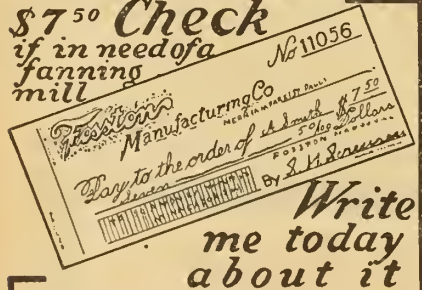 $7 50 Check
if in need of a
fanning
mill
No 11056
Manufacturing Co
Pay to the order of A Smith $7 50
Seven 50/100 Dollars
By
Write
me today
about it